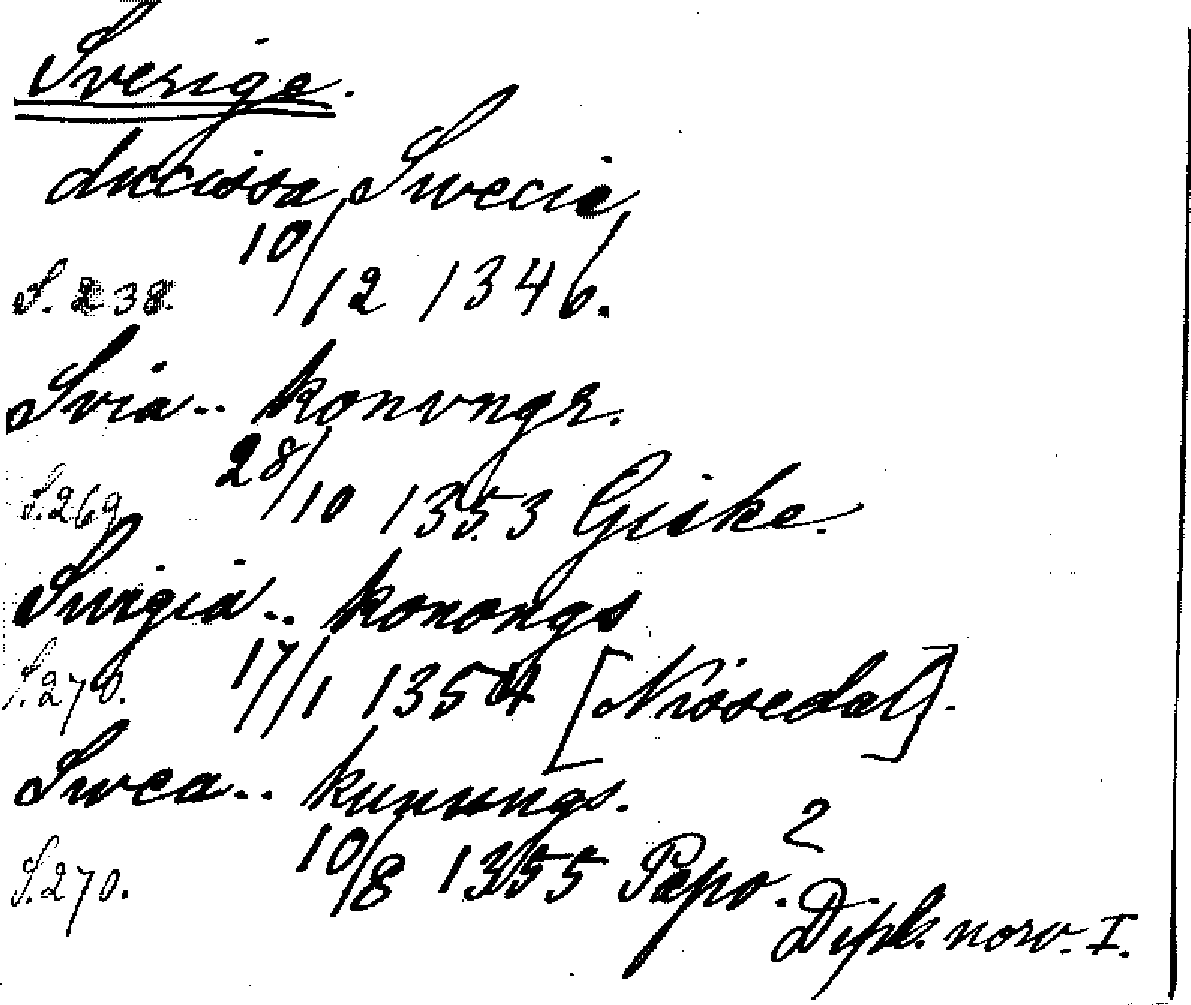 Sverige.
ducissa Swecie
10/12 1346.
S. 238.
Svia.. konvngr.
28/10 1353 Giske.
S. 269
Swigia.. konongs
S. 270. 17/1 1354 [Niosedal].
Swea.. kunungs.
2
S. 270. 10/8 1355 Pæpo.
Dipl. norv. I.